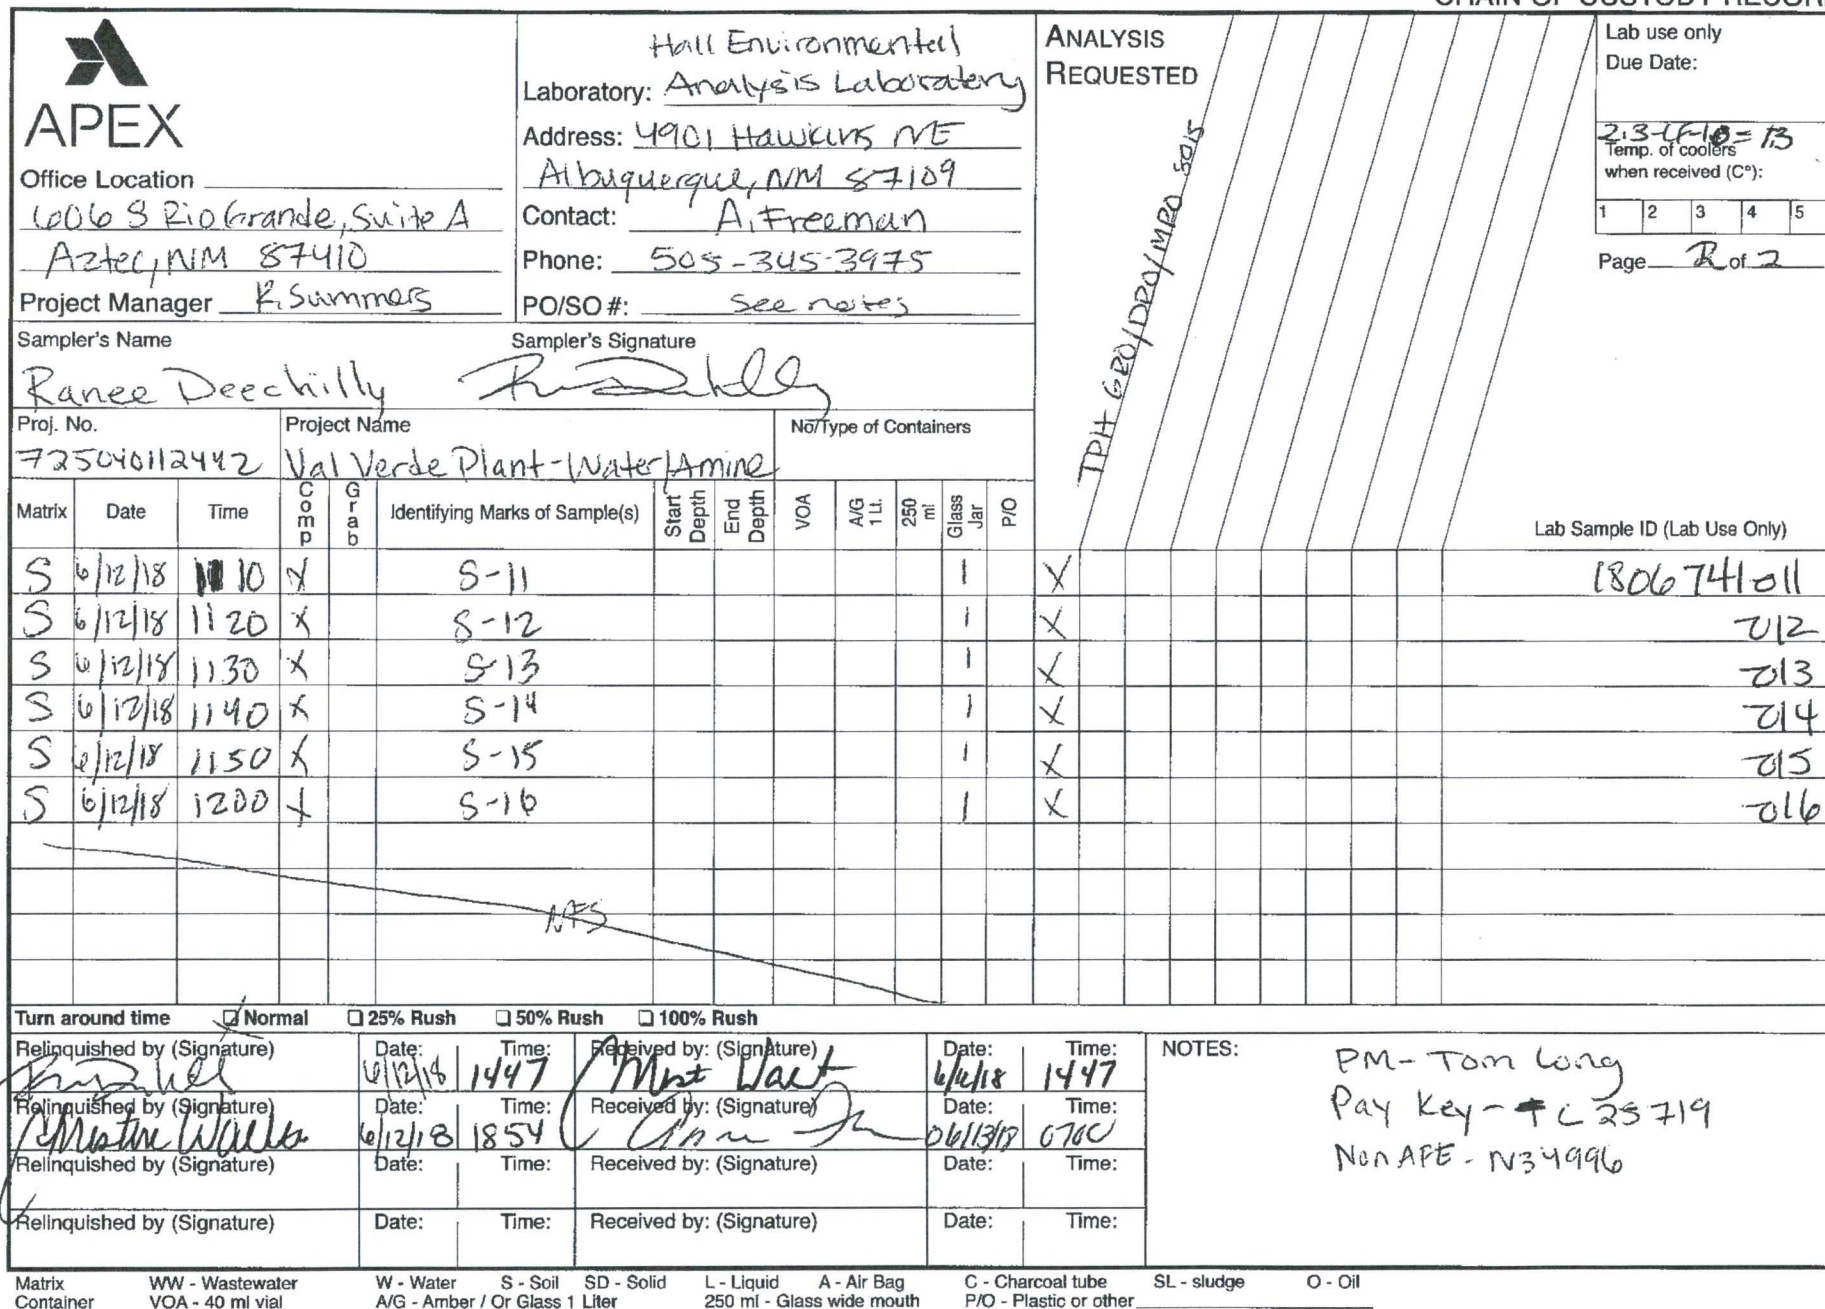 CHAIN OF CUSTODY RECORD
APEX
Office Location
606 S Rio Grande, Suite A
Aztec, NM 87410
Project Manager R. Summers
Hall Environmental
Laboratory: Analysis Laboratory
Address: 4901 Hawkins NE
Albuquerque, NM 87109
Contact: A. Freeman
Phone: 505-345-3975
PO/SO #: See notes
ANALYSIS
REQUESTED
TPH GRO/DRO/MRO 8015
Lab use only
Due Date:
Temp. of coolers
when received (C°):
1 2 3 4 5
Page 2 of 2
Sampler's Name
Ranee Deechilly
Sampler's Signature
Proj. No.
725040112442
Project Name
Val Verde Plant-Water/Amine
No/Type of Containers
Matrix Date Time Comp Grab Identifying Marks of Sample(s) Start Depth End Depth VOA A/G 1 Lt. 250 ml Glass Jar P/O Lab Sample ID (Lab Use Only)
S 6/12/18 1110 X S-11 1 X 1806741011
S 6/12/18 1120 X S-12 1 X 012
S 6/12/18 1130 X S-13 1 X 013
S 6/12/18 1140 X S-14 1 X 014
S 6/12/18 1150 X S-15 1 X 015
S 6/12/18 1200 X S-16 1 X 016
NFS
Turn around time Normal 25% Rush 50% Rush 100% Rush
Relinquished by (Signature) Date: Time: Received by: (Signature) Date: Time:
6/12/18 1447 6/12/18 1447
Relinquished by (Signature) Date: Time: Received by: (Signature) Date: Time:
6/12/18 1854 06/13/18 0700
Relinquished by (Signature) Date: Time: Received by: (Signature) Date: Time:
Relinquished by (Signature) Date: Time: Received by: (Signature) Date: Time:
NOTES:
PM - Tom Long
Pay Key - C 25719
Non AFE - N34996
Matrix WW - Wastewater W - Water S - Soil SD - Solid L - Liquid A - Air Bag C - Charcoal tube SL - sludge O - Oil
Container VOA - 40 ml vial A/G - Amber / Or Glass 1 Liter 250 ml - Glass wide mouth P/O - Plastic or other